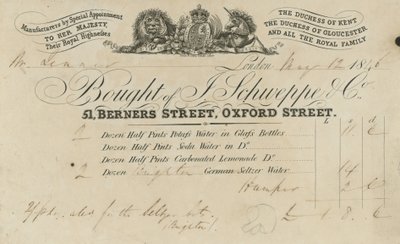 Manufacturers by Special Appointment
TO HER MAJESTY,
Their Royal Highnesses
THE DUCHESS OF KENT
THE DUCHESS OF GLOUCESTER
AND ALL THE ROYAL FAMILY
London May 12 1846
Bought of J. Schweppe & Co
51, BERNERS STREET, OXFORD STREET.
Dozen Half Pints Potass Water in Glass Bottles
Dozen Half Pints Soda Water in Do.
Dozen Half Pints Carbonated Lemonade Do.
2 Dozen Brighton German Seltzer Water 14
Hamper
for the Seltzer